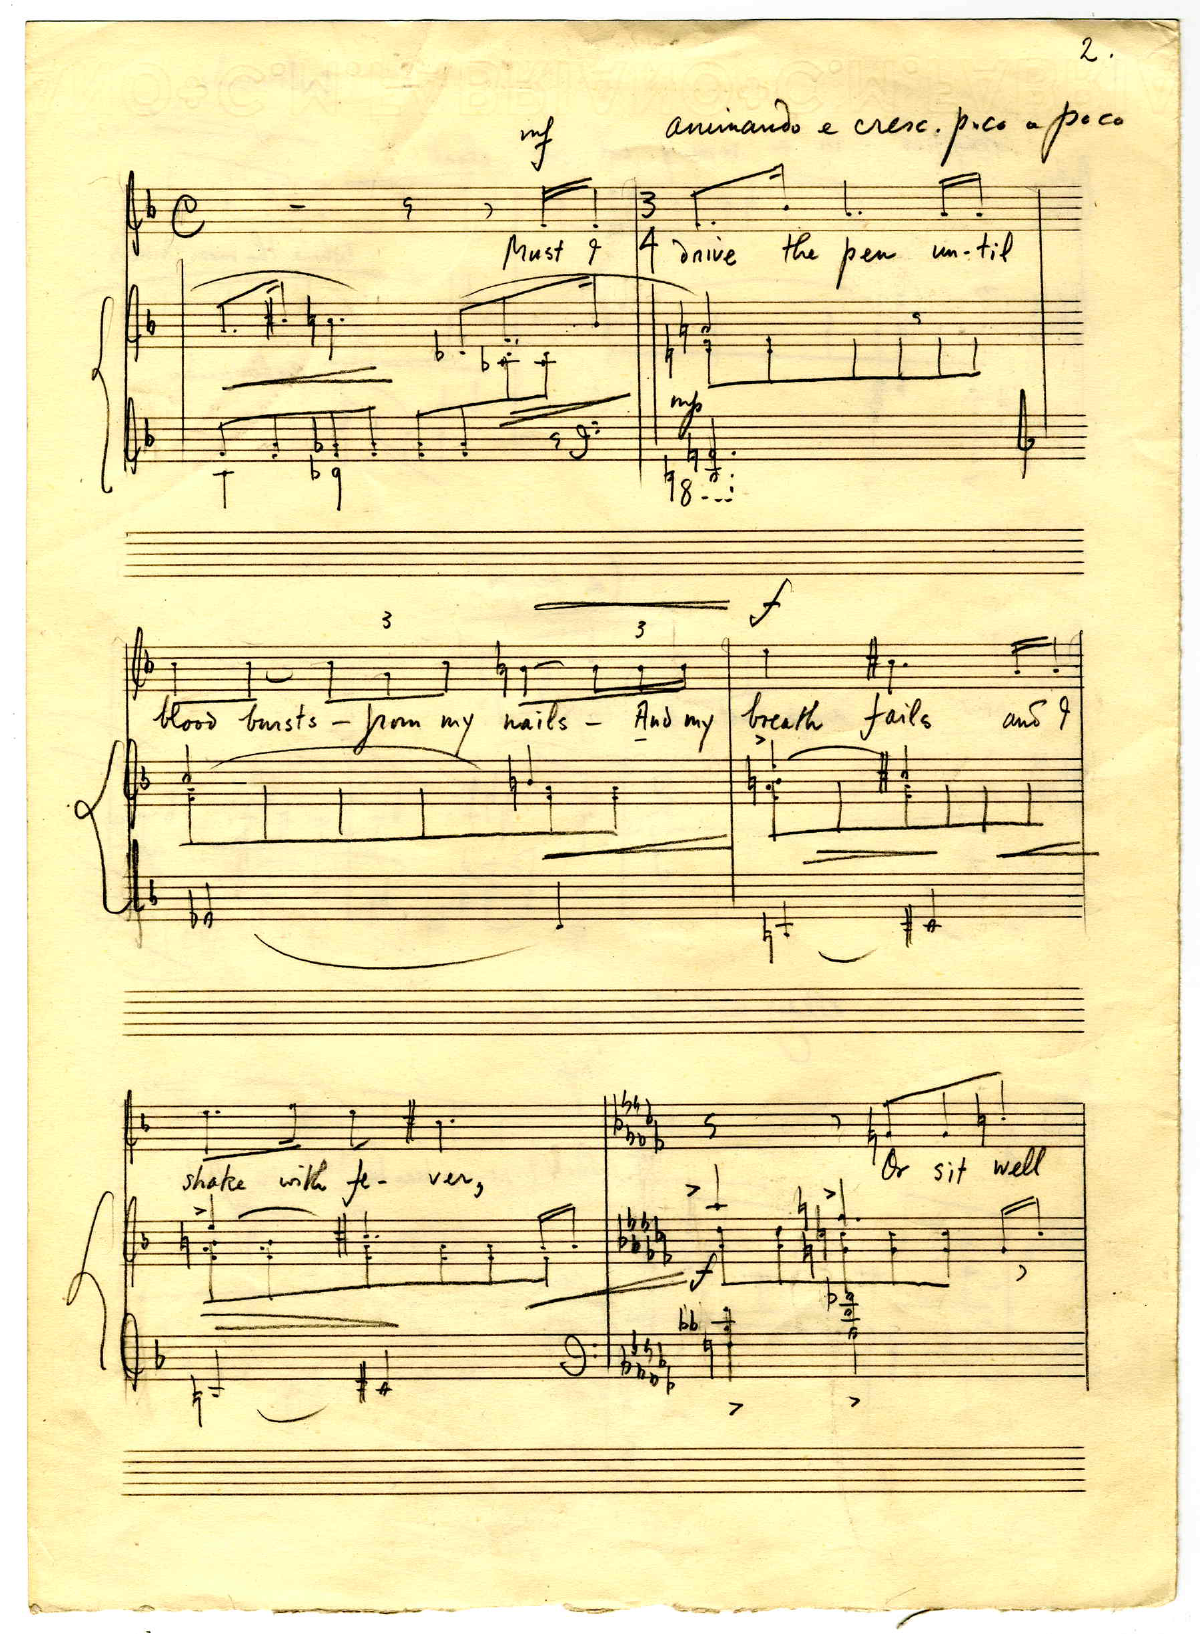 2.
mf animando e cresc. poco a poco
3
Must I 4 drive the pen un-til
mp
8
f
3 3
blood bursts - from my nails - And my breath fails and I
shake with fe- ver,
Or sit well
f